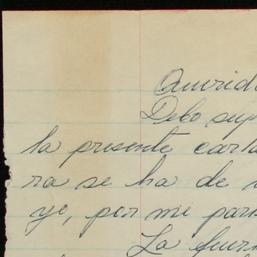 Querid
Debo sup
la presente carta
ra se ha de
ye, por mi par
La